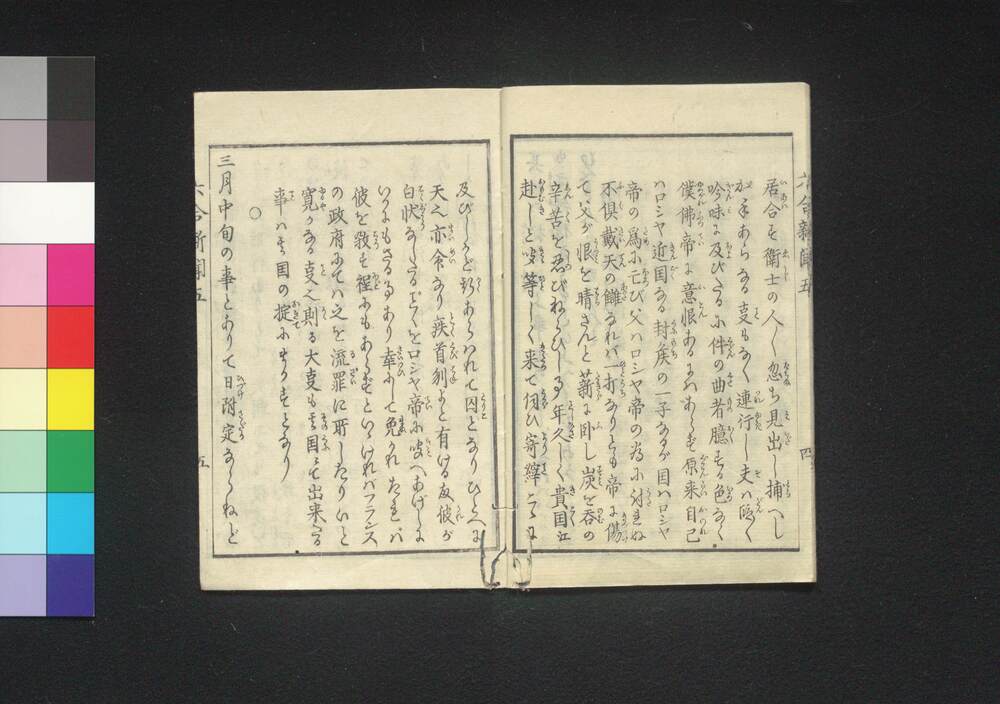 居合す衛士の人々忽ち見出し捕へし
が手あらなる事もなく連行し夫ハ隈なく
吟味に及びたるに件の曲者臆する色なく
僕佛帝に意恨あるにハあらず原来自己
ハロシヤ近国なる封矦の一子なるが国ハロシヤ
帝の為に亡び父ハロシヤ帝の為に討れぬ
不倶戴天の讎なれバ一打なりとも帝に傷
て父が恨を晴さんと薪に臥し炭を呑の
辛苦を忍びねらひし事年久しく貴国江
赴しと聞等しく来て伺ひ寄
及びしかど あらハれて囚となりひとへに
天之命なり疾首刎よと有ける故彼が
白状なしたる をロシヤ帝に へあげしに
いかにもさる事あり幸にして免かれたれバ
彼を殺す程にもあらずといいけれバフランス
の政府にてハ之を流罪に所したりいと
寛かなる事之則る大事も其国にて出来る
事ハ其国の掟にまかすとなり
○
三月中旬の事とありて日附定ならねど
六合新聞五
五
六合新聞五
四